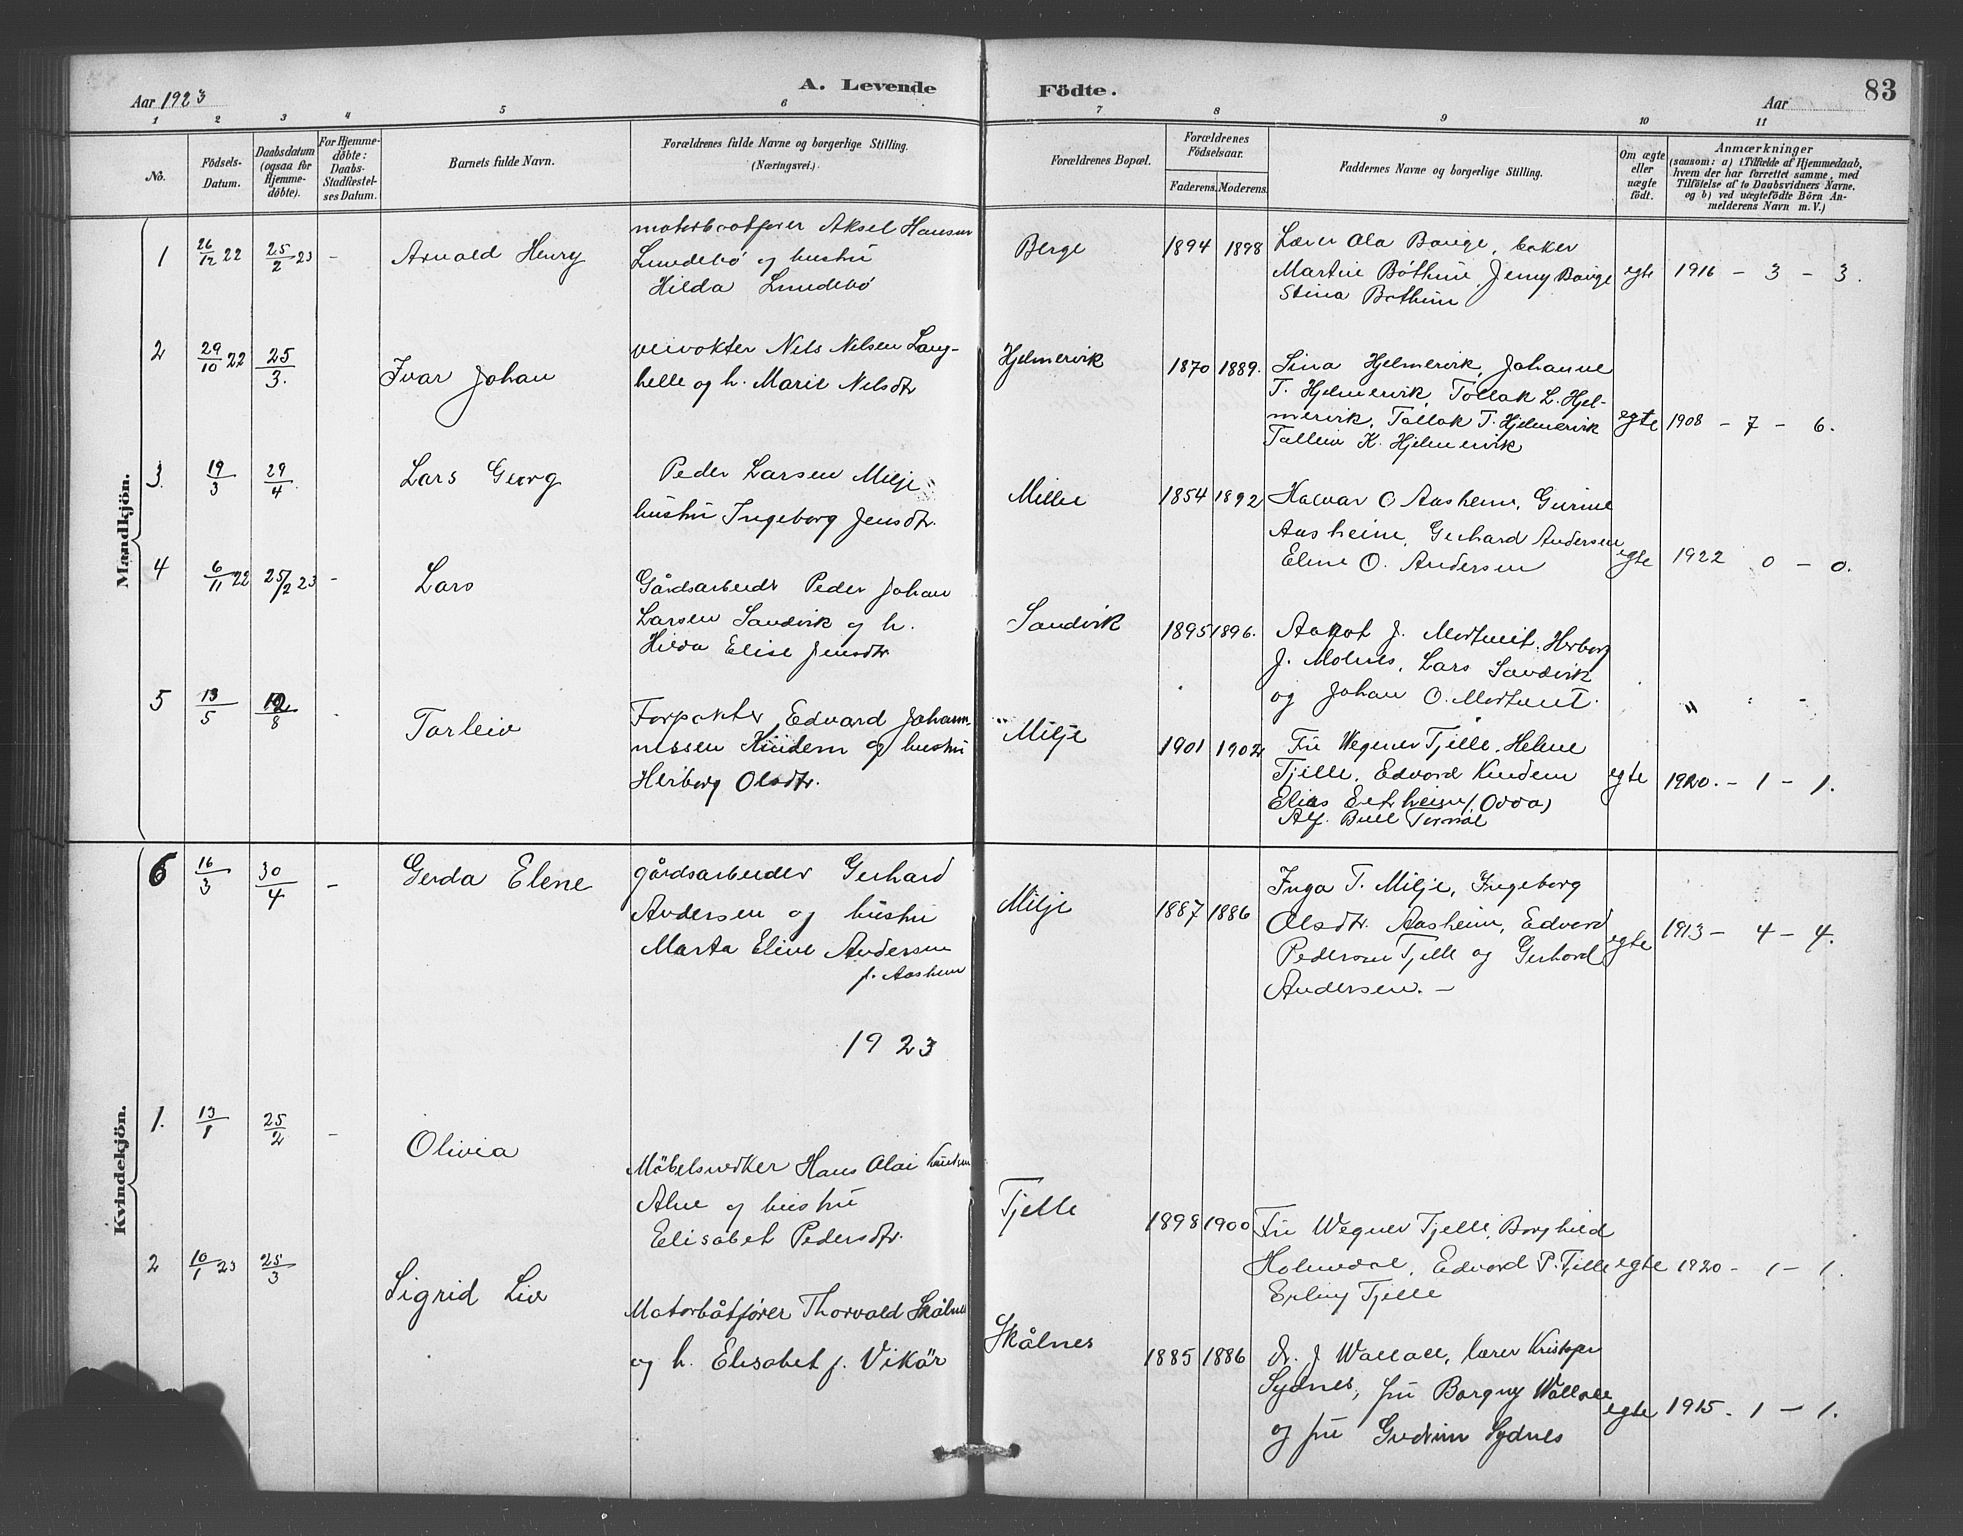 Aar 1923
A. Levende Födte.
Aar
83
1 2 3 4 5 6 7 8 9 10 11
No.
Födsels-Datum.
Daabsdatum (ogsaa for Hjemme-döbte).
For Hjemme-döbte: Daabs-Stadfæstel-ses Datum.
Barnets fulde Navn.
Forældrenes fulde Navne og borgerlige Stilling. (Næringsvei.)
Forældrenes Bopæl.
Forældrenes Födselsaar.
Faderens. Moderens.
Faddernes Navne og borgerlige Stilling.
Om ægte eller uægte födt.
Anmærkninger
(saasom: a) i Tilfælde af Hjemmedaab, hvem der har forrettet samme, med Tilföielse af to Daabsvidners Navne. og b) ved uægtefödte Börn An-melderens Navn m. V.)
Mandkjön.
1 26/12 22 25/2 23 - Arnold Henry
motorbaatfører Aksel Hansen
Lundebö og hustru
Hilda Lundebö
Berge 1894 1898
Lærer Ola Bauge, baker
Martin Böthun, Jenny Bauge
Stina Bothun
egte 1916 - 3 - 3.
2 29/10 22 25/3. Ivar Johan
veivokter Nils Nilsen Lang-
helle og h. Marie Nilsdtr
Hjelmervik 1870 1889.
Sina Hjelmervik, Johanne
T. Hjelmervik, Tollak L. Hjel-
mervik, Tollak T. Hjelmervik
K. Hjelmervik
egte 1908 - 7 - 6.
3. 19/3 29/4 Lars Georg
Peder Larsen Milje
hustru Ingeborg Jensdtr.
Milje 1854 1892
Halvar O Aasheim, Gurine
Aasheim, Gerhard Andersen
Eline O. Andersen
egte 1922 0 - 0.
4 6/11 22 25/2 23 - Lars
Gårdsarbeidr Peder Johan
Larsen Sandvik og h.
Hilda Elise Jensdtr
Sandvik 1895 1896.
J. Herborg
J. Molnes, Lars Sandvik
og Johan O.
" " -
5 13/5 8 - Torleiv
Forpakter Edvard Johan-
nessen Kindem og hustru
Herborg Olsdtr.
Milje 1901 1902
Fru Wegner Tjelle, Helene
Tjelle, Edvard Kindem
Elias (Odda)
Alf. Bull
egte 1920. - 1 - 1.
Kvindekjön.
6 16/3 30/4 - Gerda Elene
gårdsarbeider Gerhard
Andersen og hustru
Marta Eline Andersen
f. Aasheim
Milje 1887 1886
Inga T. Milje, Ingeborg
Olsdtr. Aasheim, Edvard
Pedersen Tjelle og Gerhard
Andersen. -
egte 1913 - 4 - 4.
1923
1. 13/1 25/2 - Olivia
Möbelsnedker Hans Olai Knutsen
og hustru
Elisabet Pedersdtr.
Tjelle 1898 1900
Fru Wegner Tjelle, Borghild
Holmedal, Edvard P. Tjelle
Erling Tjelle
egte 1920 - 1 - 1.
2 10/1 23 25/3 Sigrid Liv
Motorbåtfører Thorvald Skålnes
og h. Elisabet f. Vikör
Skålnes 1885 1886
dr. J Wallace, lærer Kristofer
Sydnes, fru Borgny Wallace
og fru Gudrun Sydnes
egte 1915 - 1 - 1.